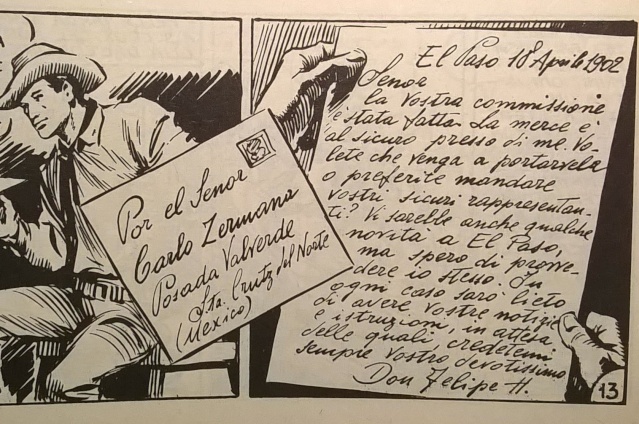 Por el Senor
Carlo Zermana
Posada Valverde
Sta. Crutz del Norte
(Mexico)
El Paso 18 Aprile 1902
Senor
la vostra commissione
è stata fatta. La merce è
al sicuro presso di me. Vo-
lete che venga a portarvela
o preferite mandare
vostri sicuri rappresentan-
ti? Vi sarebbe anche qualche
novità a El Paso,
ma spero di provve-
dere io stesso. In
ogni caso sarò lieto
di avere vostre notizie
e istruzioni, in attesa
delle quali credetemi
sempre vostro devotissimo
Don Felipe H.
13